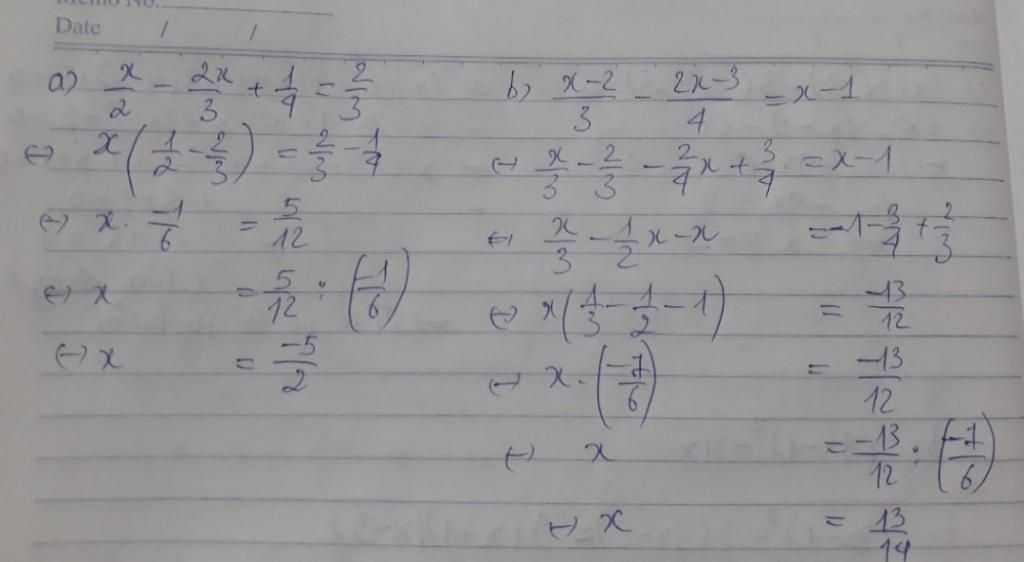 Memo No.
Date / /
a) x/2 - 2x/3 + 1/4 = 2/3
⇔ x(1/2 - 2/3) = 2/3 - 1/4
⇔ x. -1/6 = 5/12
⇔ x = 5/12 : (-1/6)
⇔ x = -5/2
b) (x-2)/3 - (2x-3)/4 = x-1
⇔ x/3 - 2/3 - 2/4x + 3/4 = x-1
⇔ x/3 - 1/2x - x = -1 - 3/4 + 2/3
⇔ x(1/3 - 1/2 - 1) = -13/12
⇔ x. (-7/6) = -13/12
⇔ x = -13/12 : (-7/6)
⇔ x = 13/14